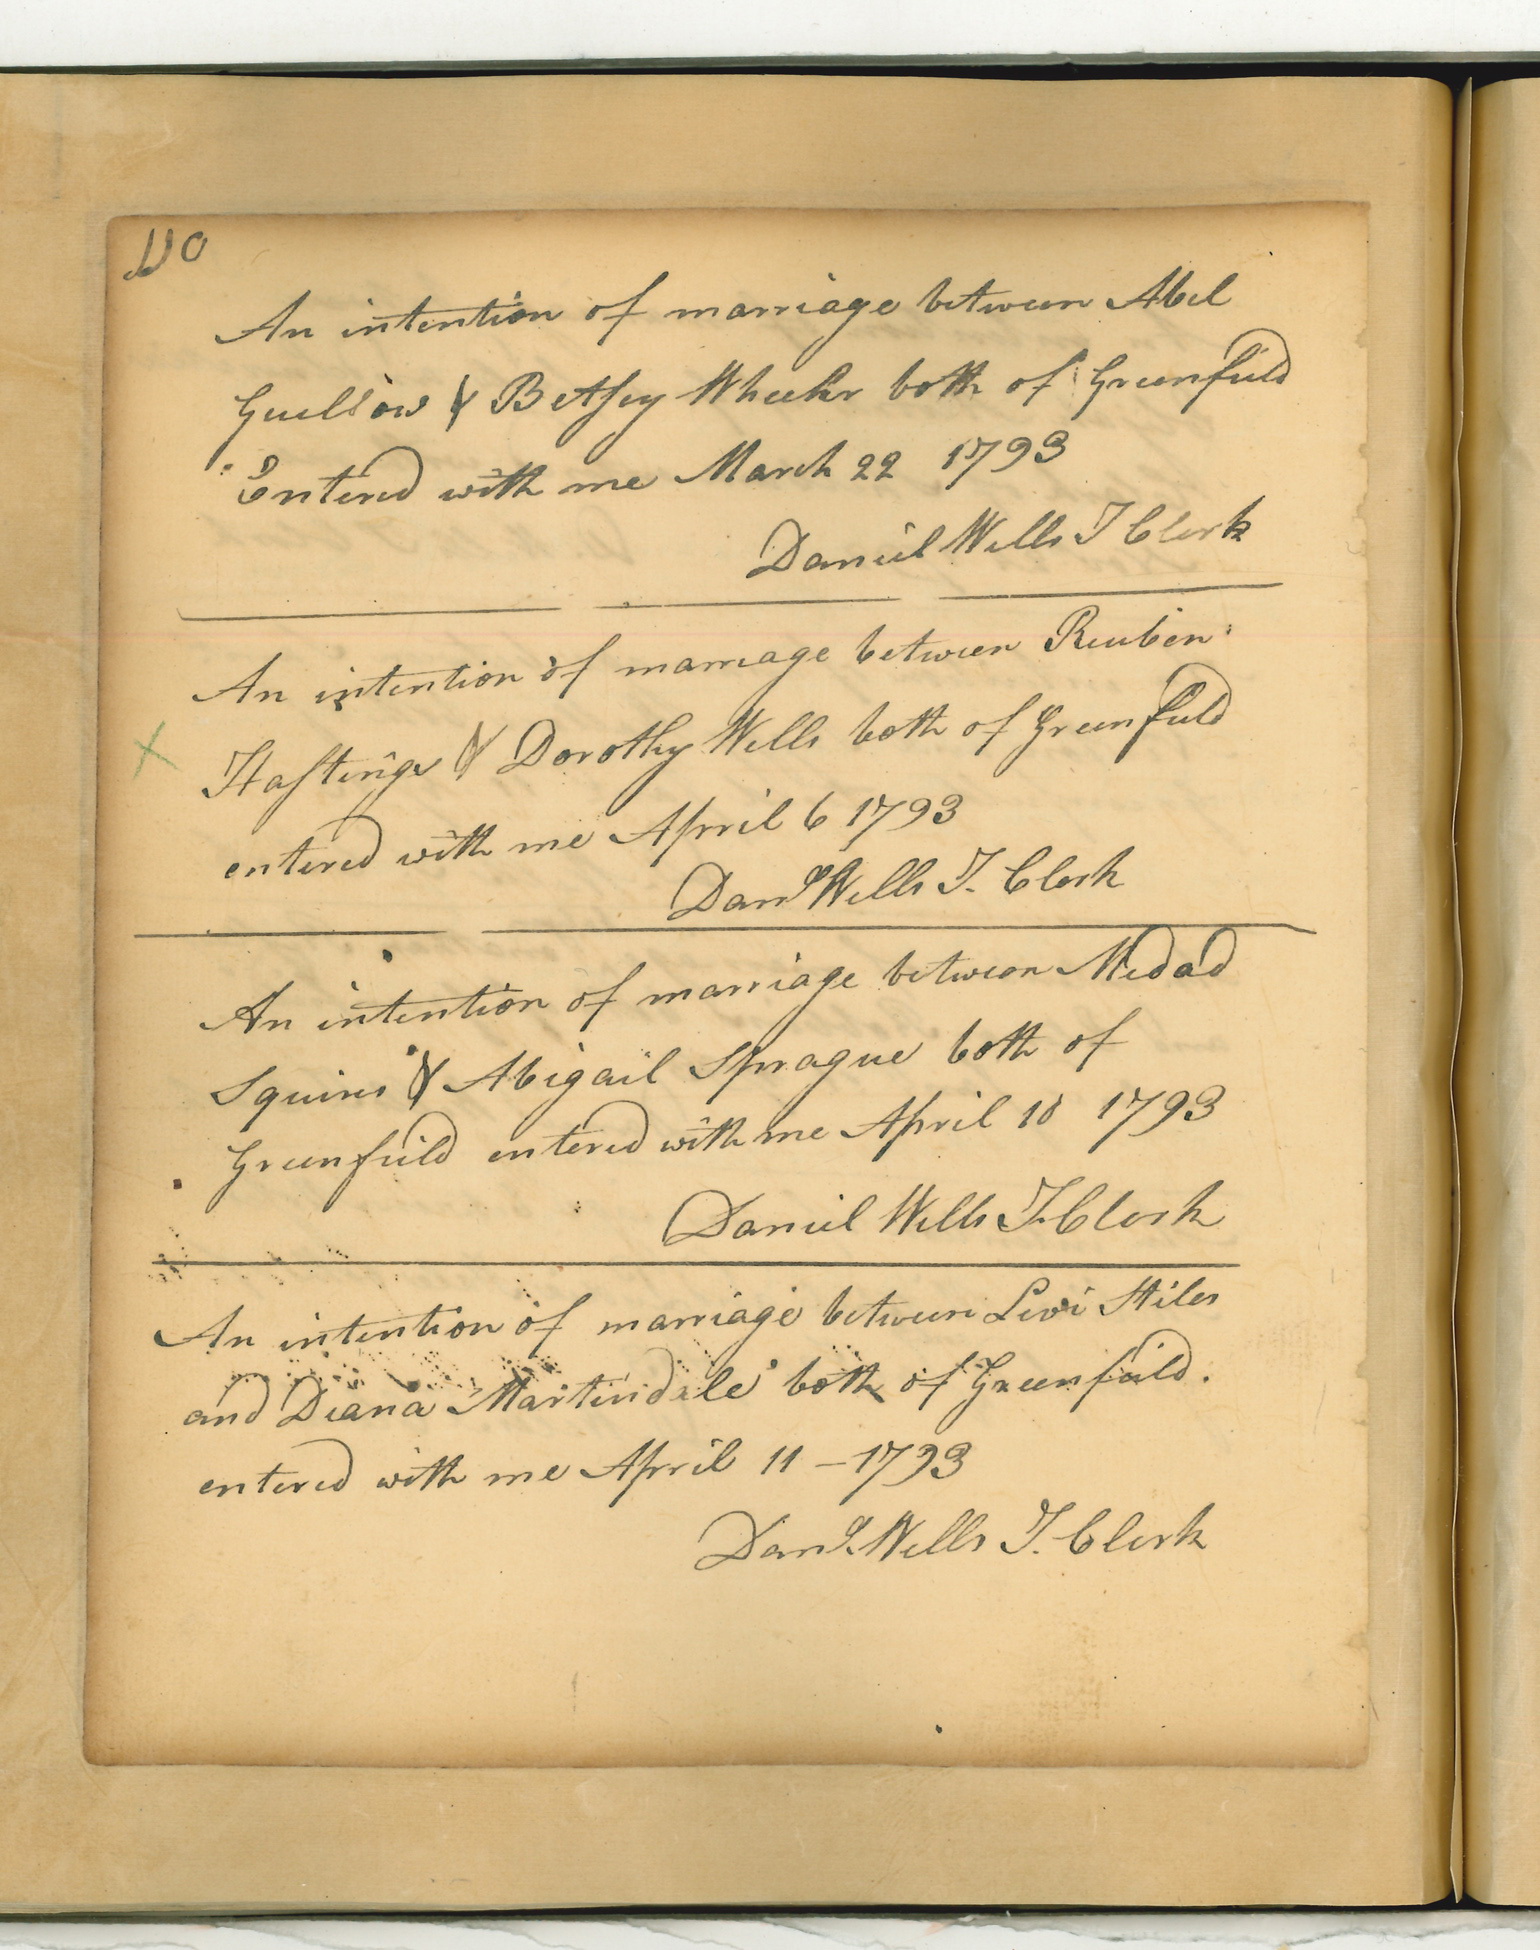 110
An intention of marriage between Abel
Guellow & Betsey Wheeler both of Greenfield
Entered with me March 22 1793
Daniel Wells T Clerk
An intention of marriage between Reuben
Hastings & Dorothy Wells both of Greenfield
entered with me April 6 1793
Danl Wells T. Clerk
An intention of marriage between Medad
Squires & Abigail Sprague both of
Greenfield entered with me April 10 1793
Daniel Wells T. Clerk
An intention of marriage between Levi Stiles
and Diana Martindale both of Greenfield.
entered with me April 11 - 1793
Danl. Wells T. Clerk